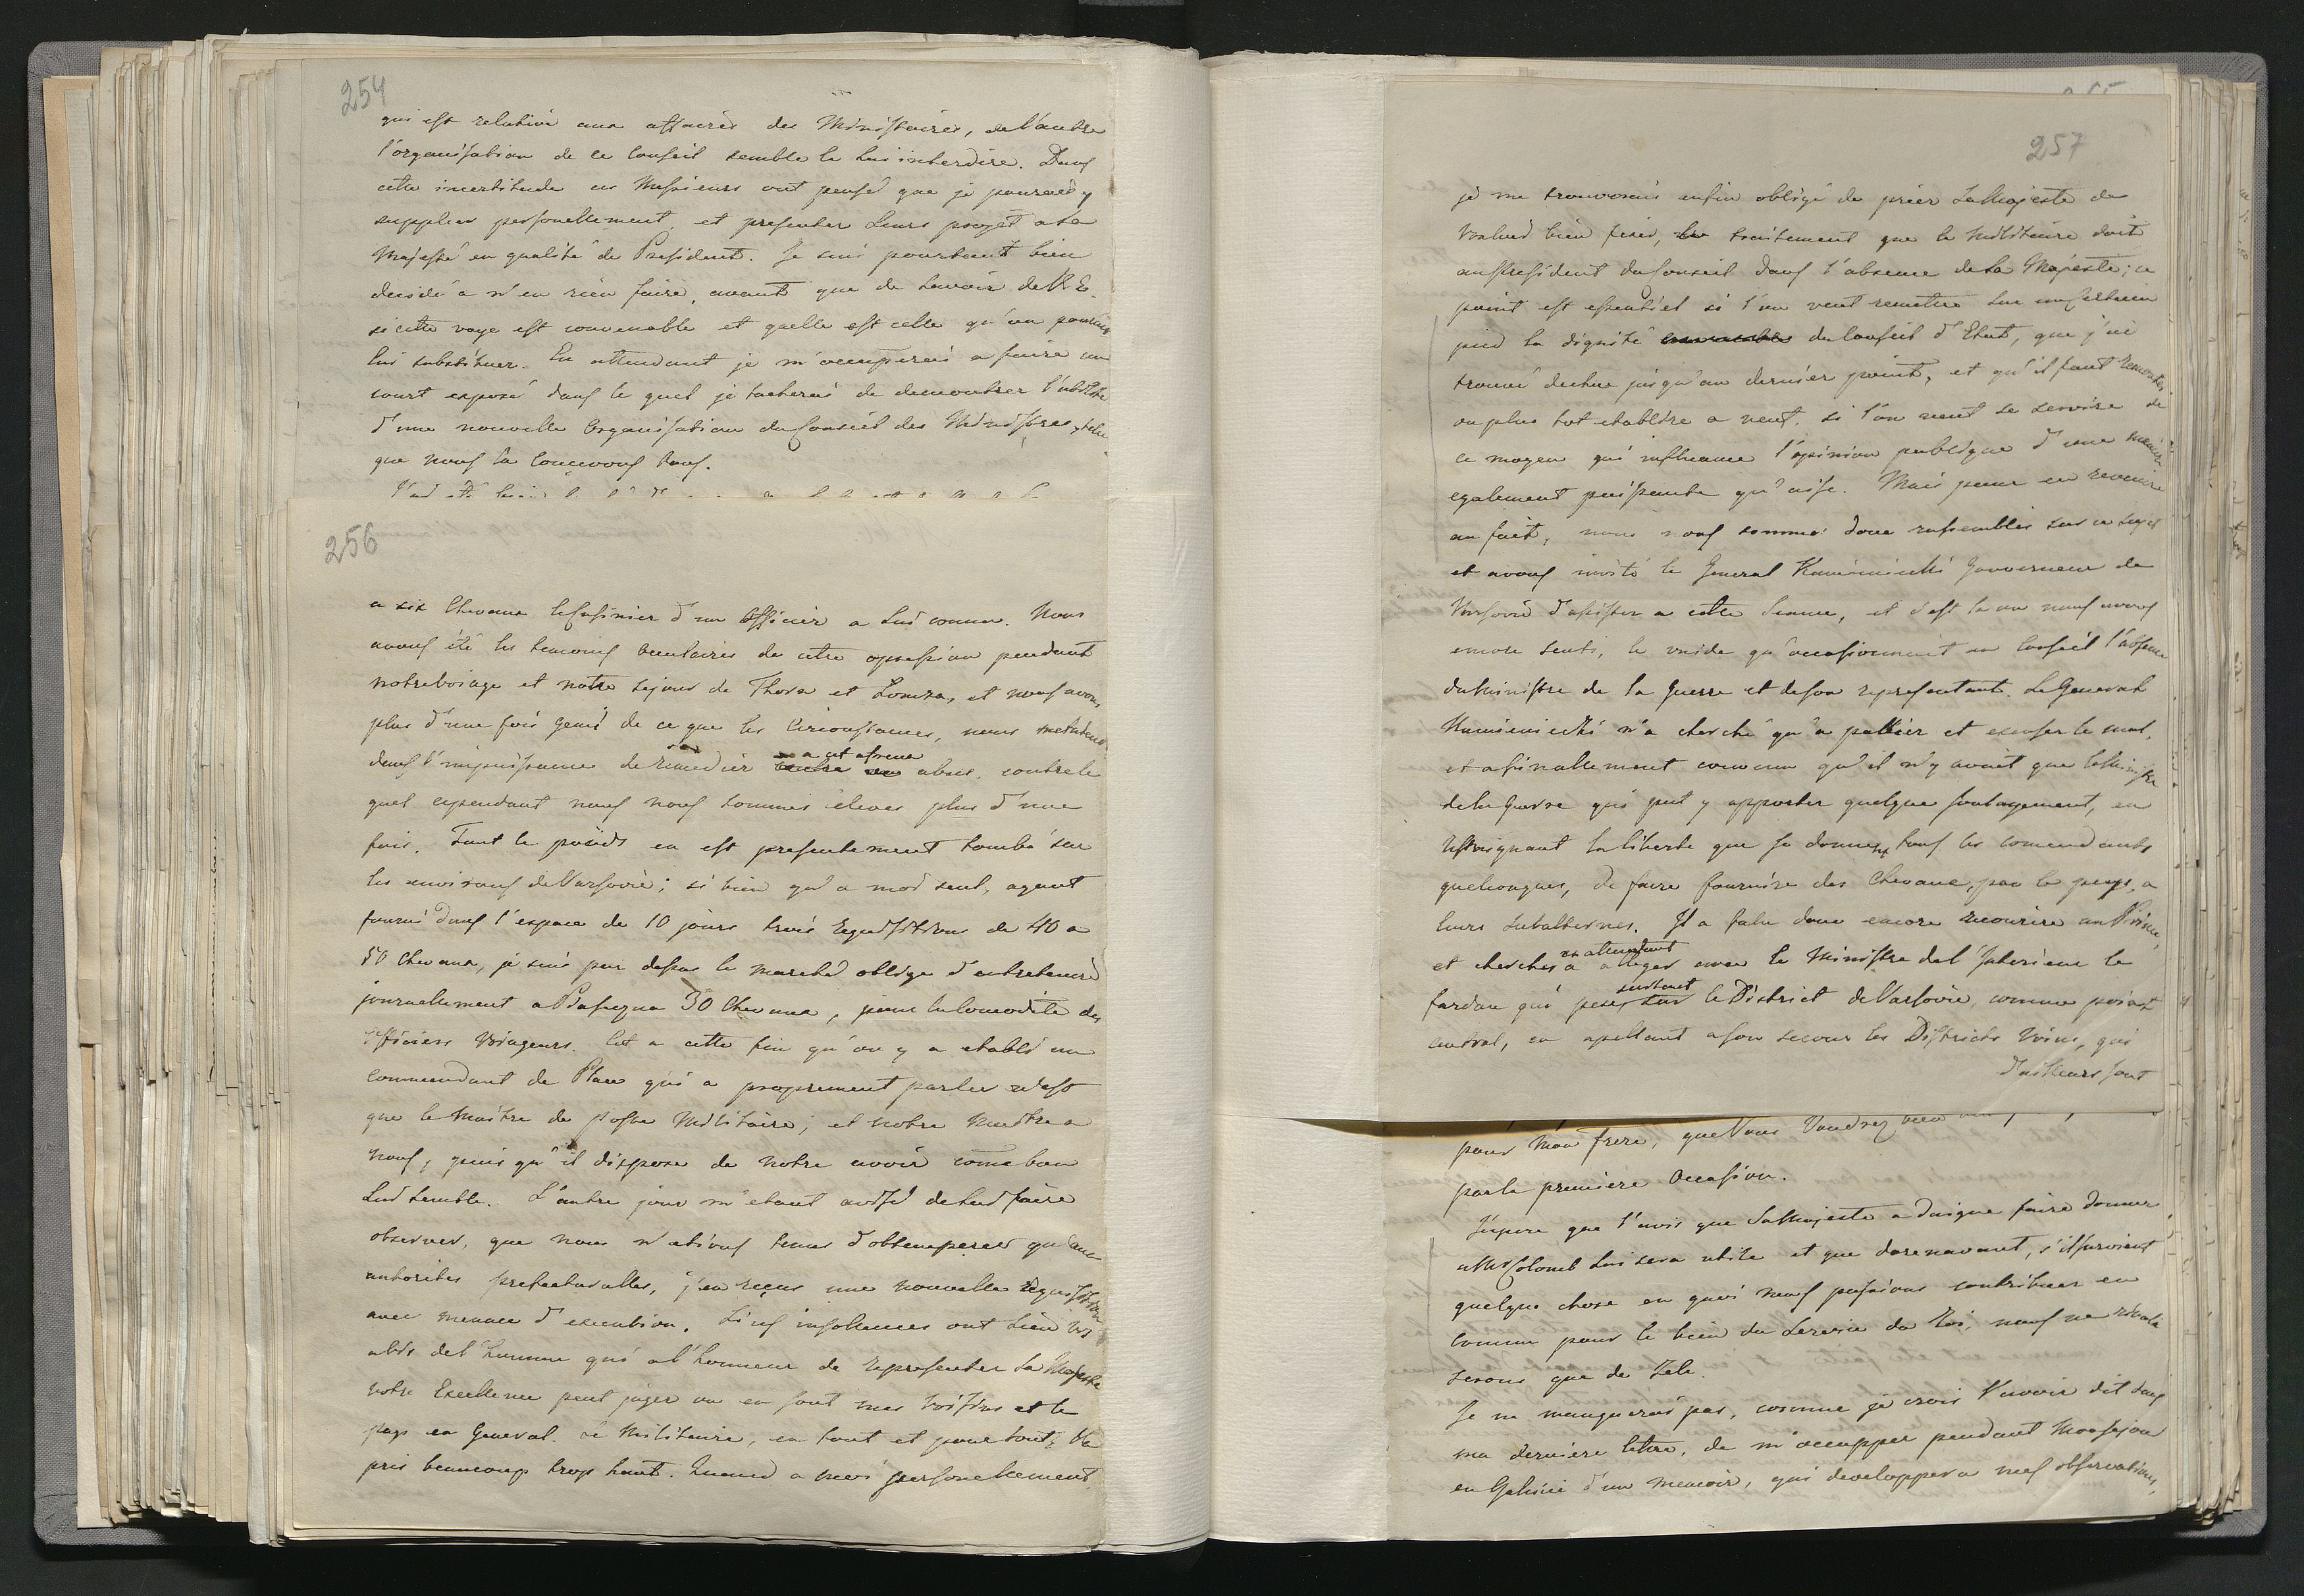 254
qui est relative aux affaires des Ministeires, de l'autre
l'organisation de ce Conseil semble le lui interdire. Dans
cette incertitude ces Messieurs ont pensé que je pourais y
suppleer personellement, et presenter Leurs projet a Sa
Majesté en qualité de President. Je suis pourtant bien
decidé a n'en rien faire, avant que de savoir de V. E.
si cette voye est convenable et quelle est celle qu'on pourrait
lui substituer. En attendant je m'occuperai a faire un
court exposé dans le quel je tacherai de demontrer l'utilité
d'une nouvelle Organisation du Conseil des Ministres, telle
que nous la Concevons tous.
256
a six Chevaux le Cusinier d'un Officier a Lui connu. Nous
avons été les temoins Oculaires de cette opression pendant
notre voiage et notre sejour de Thorn et Lomza, et nous avons
plus d'une fois gemi de ce que les Circonstances, nous mettaient
dans l'impuissance de remedier a cet afreux abus, contre le
quel cependant nous nous sommes elevés plus d'une
fois. Tout le poids en est presentement tombé sur
les environs de Varsovie; si bien qu'a moi seul, ayant
fourni dans l'espace de 10 jours trois Requisitions de 40 a
50 Chevaux, je suis par dessus le marché obligé d'entretenir
journellement a Raszyn 30 Chevaux, pour la Comodité des
Officiers Voiageurs. C'est a cette fin qu'on y a etabli un
commendant de Place qui a proprement parler n'est
que le Maitre de poste Militaire; et notre Maitre a
nous, puis qu'il dispose de notre avoir come bon
Lui semble. L'autre jour m'etant avisé de Lui faire
observer, que nous n'etions tenus d'obtemperer qu'aux
autorités prefecturalles, j'en reçus une nouvelle requisition
avec menace d'execution. Si ces insolences ont Lieu vis
a vis de l'homme qui a l'honneur de representer Sa Majesté
votre Excellence peut juger ou en sont mes Voisins et le
pays en General. Le Militaire, en tout et pour tout, l'a
pris beaucoup trop haut. Quand a moi personellement,
257
je me trouverais enfin obligé de prier Sa Majesté de
vouloir bien fixer, le traitement que le Militaire doit
au President du Conseil dans l'absence de Sa Majesté; ce
point est essentiel si l'on veut remettre sur un certain
pied la dignité du Conseil d'Etat, que j'ai
trouvé dechue jusqu'au dernier point, et qu'il faut remonter
ou plus tot etablire a neuf, si l'on veut se servire de
ce moyen qui influence l'opinion publique d'une maniere
egalement puissante qu'aisé. Mais pour en revenire
au fait, nous nous sommes donc rassemblés sur ce sujet
et avons invité le General Kamieniecki Gouverneur de
Varsovie d'assister a cette Seance, et c'est la ou nous avons
encore senti, le vuide qu'occasionnait au Conseil l'absence
du Ministre de la Guerre et de son representant. Le General
Kamieniecki n'a cherché qu'a pallier et excuser le mal,
et a finallement convenu qu'il n'y avait que le Ministre
de la Guerre qui put y apporter quelque soulagement, en
restreignant la liberté que se donnent tous les comendants
quelconques, de faire fournire des Chevaux, par le pays, a
leurs subalternes. Il a falu donc encore recourire au Prince,
et chercher en attendant a aleger avec le Ministre de l'Interieur le
fardau qui pese surtout sur le District de Varsovie, comme point
central, en apellant a son secours les Districts Voisins, qui
d'ailleurs sont
pour Mon frere, que Vous Voudrez bien
par la premiere Occasion.
J'espere que l'avis que Sa Majesté a daigné faire donner
a Mr Colomb Lui sera utile et que dorenavant, s'il survient
quelque chose en quoi nous puissions contribuer en
commun pour le bien du Service du Roi, nous ne rivali
serons que de Zele.
Je ne manquerai pas, comme je crois l'avoir dit dans
ma derniere lettre, de m'occupper pendant Mon sejour
en Galicie d'un memoir, qui developpera mes observations,